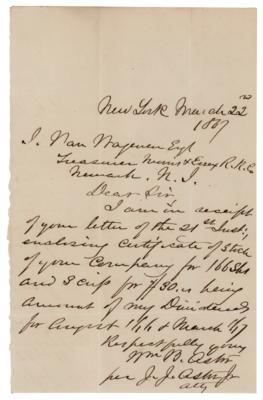 New York March 22nd
1867
I. Van Wagenen Esq
Treasurer Morris & Essex R.R. Co
Newark. N. J.
Dear Sir
I am in receipt
of your letter of the 21st Inst;
enclosing Certificate of Stock
of your Company for 166 Shs
and 3 for 7.30. is being
amount of my Dividends
for August & March
Respectfully yours
Wm B. Astor
per J. J. Astor Jr
atty